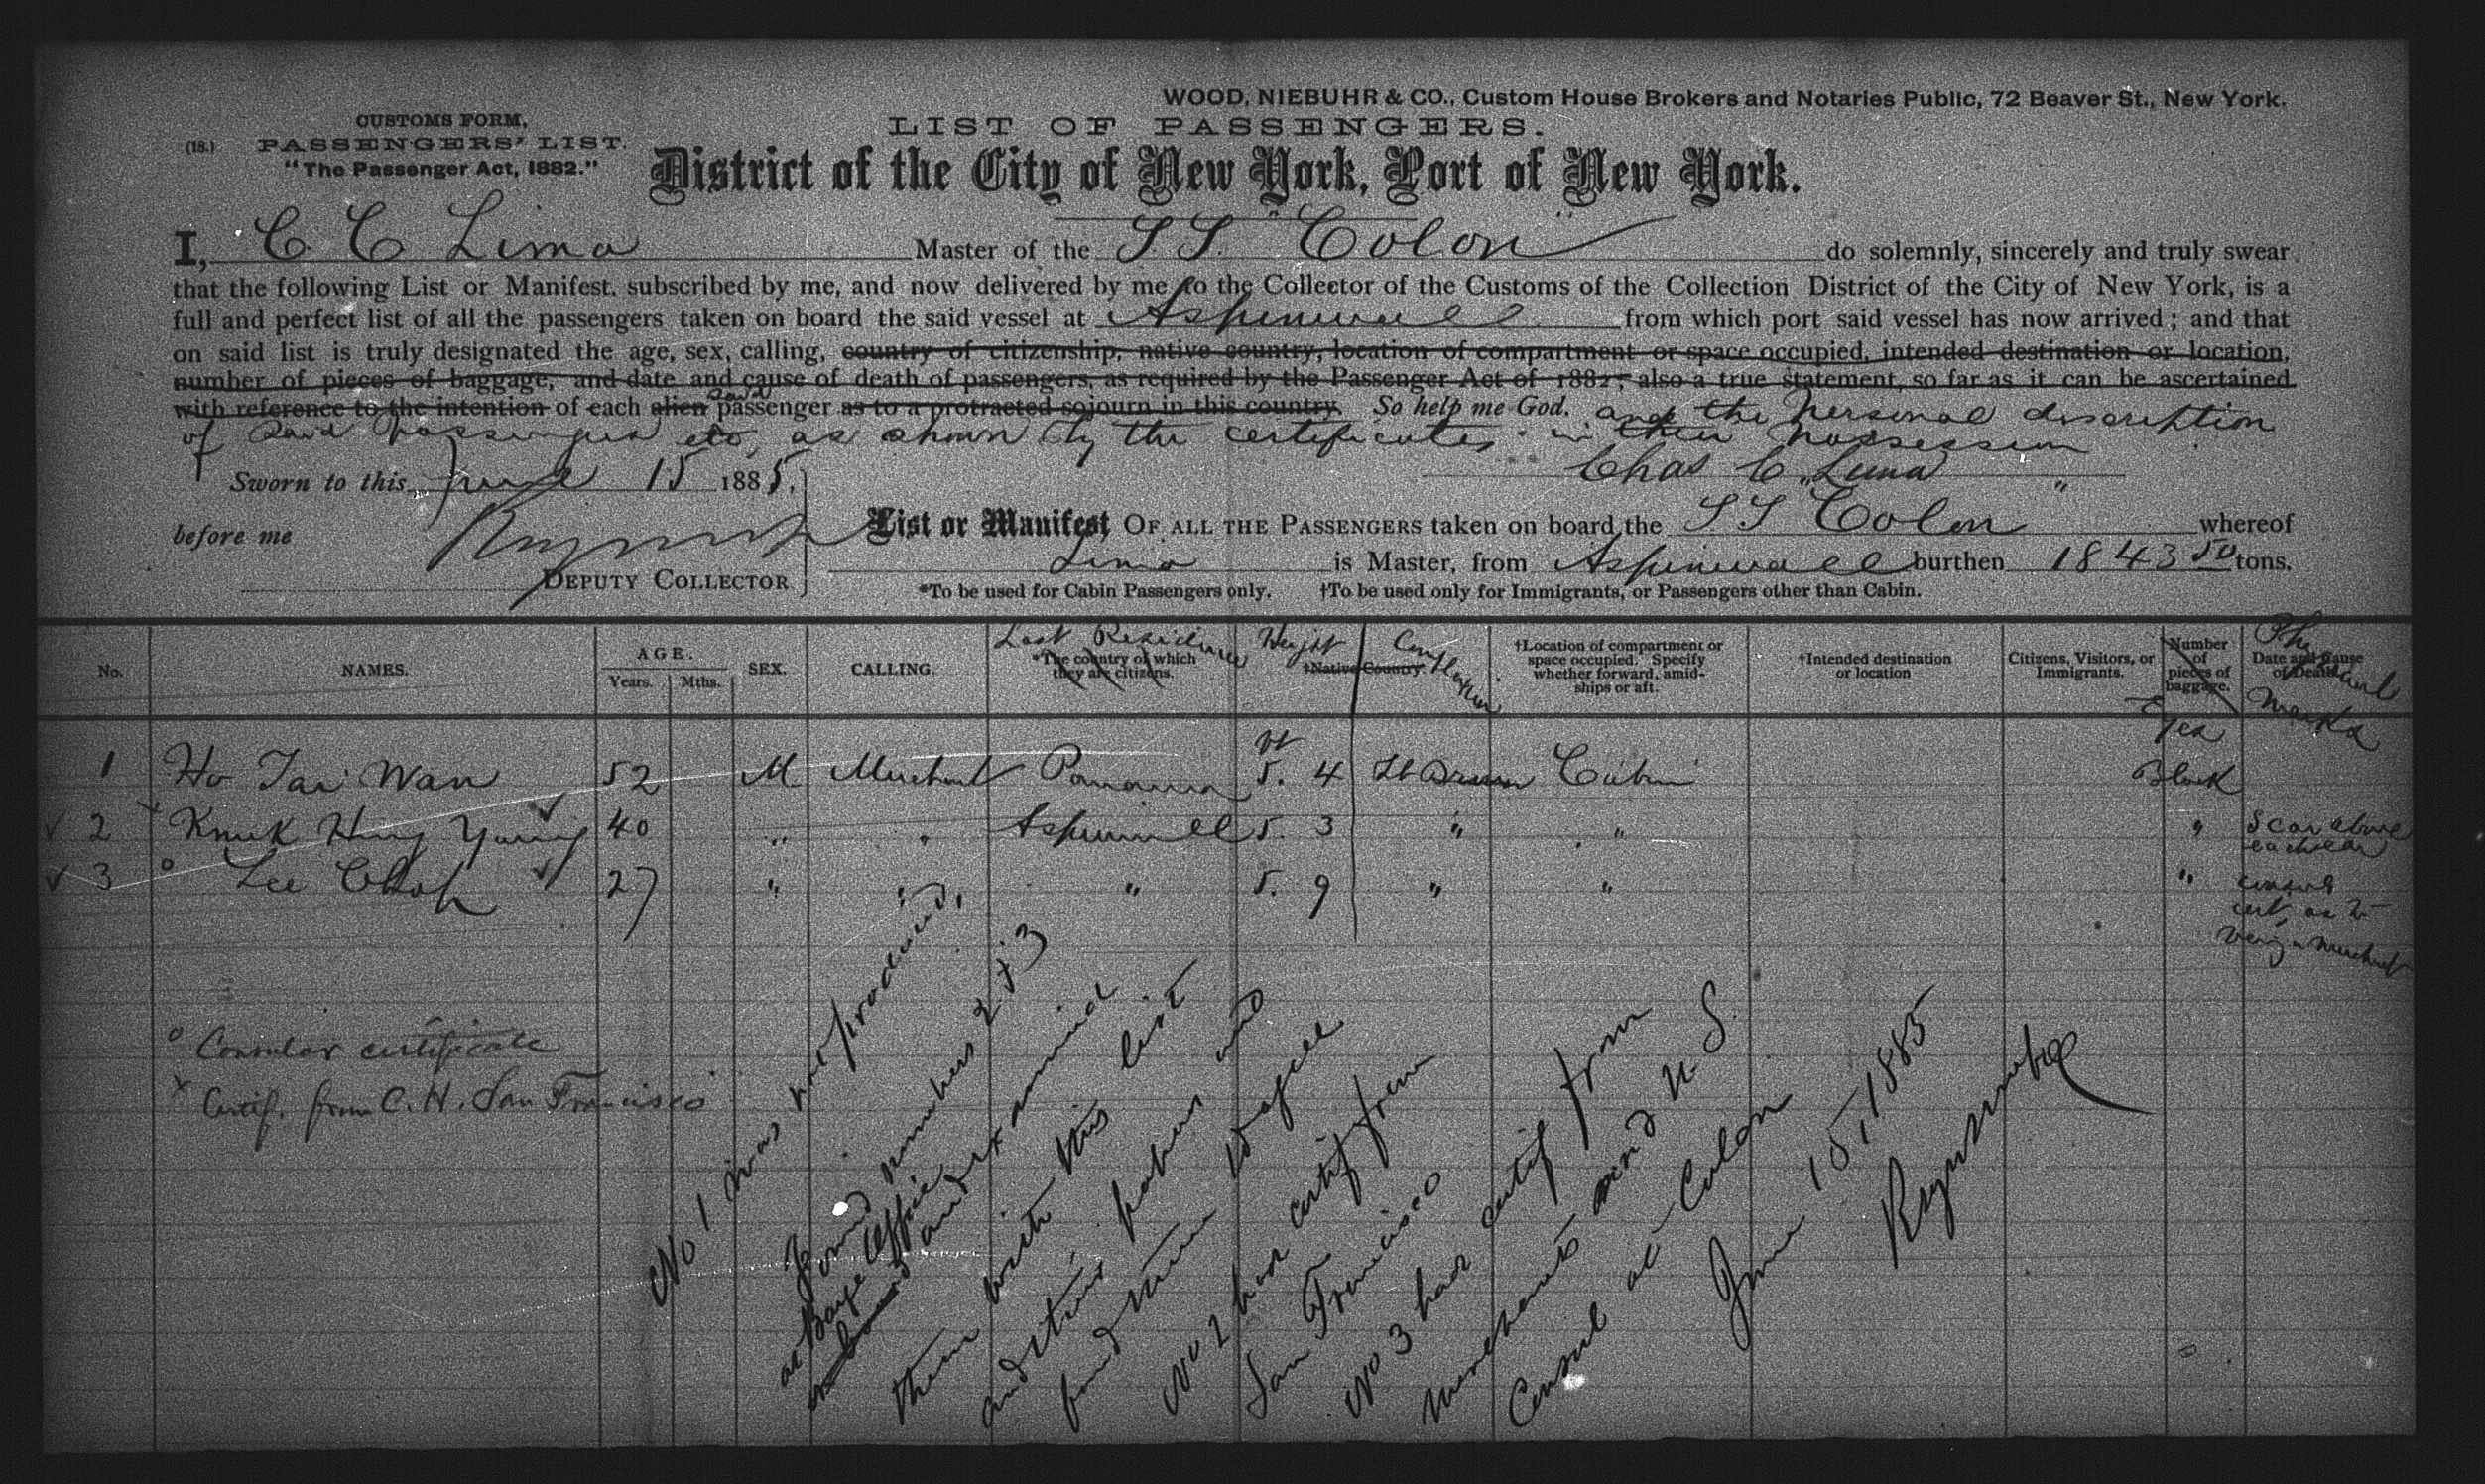 WOOD, NIEBUHR & CO., Custom House Brokers and Notaries Public, 72 Beaver St., New York.
CUSTOMS FORM,
(18.) PASSENGERS' LIST.
"The Passenger Act, 1882."
LIST OF PASSENGERS.
District of the City of New York, Port of New York.
I, C C Lima Master of the S.S. "Colon" do solemnly, sincerely and truly swear
that the following List or Manifest, subscribed by me, and now delivered by me to the Collector of the Customs of the Collection District of the City of New York, is a
full and perfect list of all the passengers taken on board the said vessel at Aspinwall from which port said vessel has now arrived; and that
on said list is truly designated the age, sex, calling, country of citizenship, native country, location of compartment or space occupied, intended destination or location,
number of pieces of baggage, and date and cause of death of passengers, as required by the Passenger Act of 1882, also a true statement, so far as it can be ascertained
with reference to the intention of each alien said passenger as to a protracted sojourn in this country. So help me God. and the personal discription
of said passengers etc, as shown by the certificates in their possession
Chas C. Lima
Sworn to this June 15 1885.
before me
DEPUTY COLLECTOR
List or Manifest OF ALL THE PASSENGERS taken on board the S S Colon whereof
Lima is Master, from Aspinwall burthen 1843 50 tons.
*To be used for Cabin Passengers only. †To be used only for Immigrants, or Passengers other than Cabin.
No. NAMES. AGE. Years. Mths. SEX. CALLING. Last Residence *The country of which they are citizens. Height †Native Country. Complexion †Location of compartment or space occupied. Specify whether forward, amidships or aft. †Intended destination or location Citizens, Visitors, or Immigrants. Number of pieces of baggage. Eyes Date and Cause of Death. Physical Marks
1 Ho Tai Wan 52 M Merchant Panama ft 5. 4 Lt Brown Cabin Black
2 x Kwuk Hing Young 40 " " Aspinwall 5. 3 " " " Scar above each ear
3 o Lee Chak 27 " " " 5. 9 " " " consuls cert, as to being a merchant
o Consular certificate
x Certif. from C. H. San Francisco
No 1 was not produced,
Found numbers 2 & 3
at Barge Office
and examined
them with this list
and their papers and
found them to agree
No 2 has certif from
San Francisco
No 3 has certif from
merchants and U S.
Consul at Colon
June 15, 1885